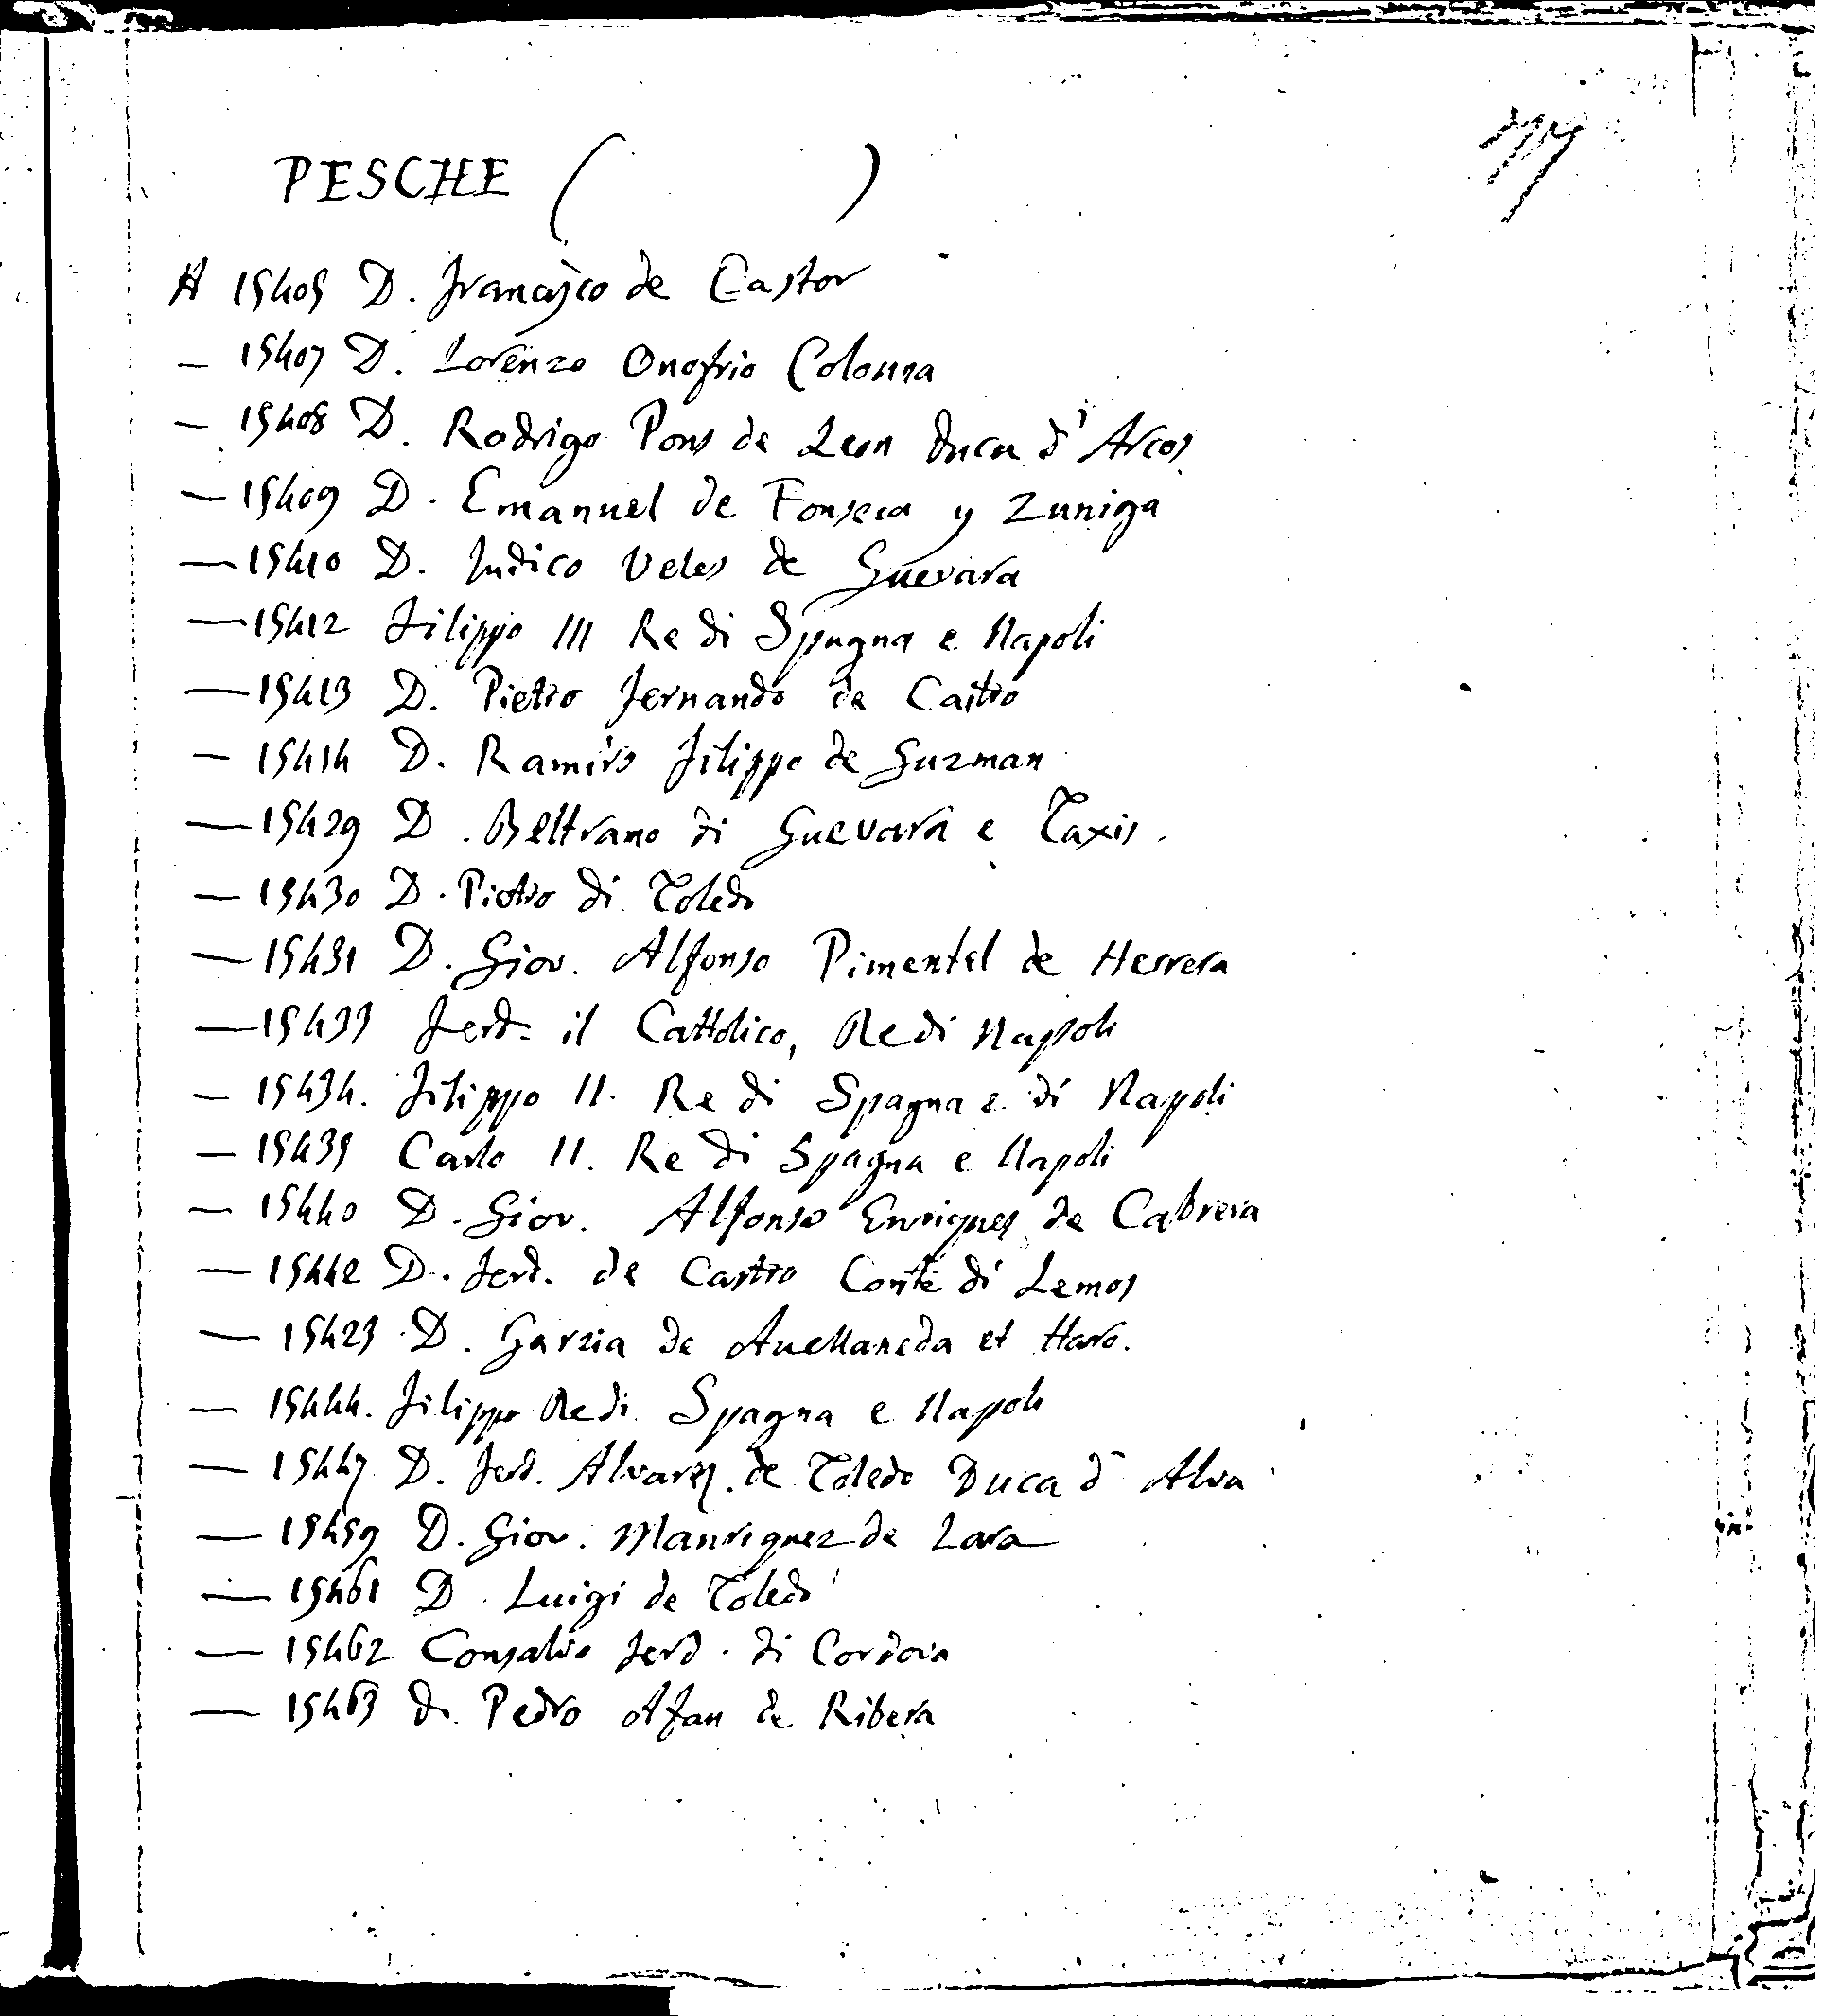 PESCHE ( )
A 15405 D. Francisco de Castor
— 15407 D. Lorenzo Onofrio Colonna
— 15408 D. Rodrigo Pons de Leon Duca d'Arcos
— 15409 D. Emanuel de Fonseca y Zuniga
— 15410 D. Indico Veles de Guevara
— 15412 Filippo III Re di Spagna e Napoli
— 15413 D. Pietro Fernando de Castro
— 15414 D. Ramiro Filippo de Guzman
— 15429 D. Beltrano di Guevara e Taxis.
— 15430 D. Pietro di Toledo
— 15431 D. Giov. Alfonso Pimentel de Herrera
— 15433 Ferd. il Cattolico, Re di Napoli
— 15434. Filippo II. Re di Spagna e di Napoli
— 15435 Carlo II. Re di Spagna e Napoli
— 15440 D. Giov. Alfonso Enriques de Cabrera
— 15442 D. Ferd. de Castro Conte di Lemos
— 15423 D. Garzia de Avellaneda et Haro.
— 15444. Filippo Re di Spagna e Napoli
— 15447 D. Ferd. Alvarez. de Toledo Duca d'Alva
— 15459 D. Giov. Manriquez de Lara
— 15461 D. Luigi de Toledo
— 15462 Consalvo Ferd. di Cordova
— 15463 D. Pedro Afan de Ribera